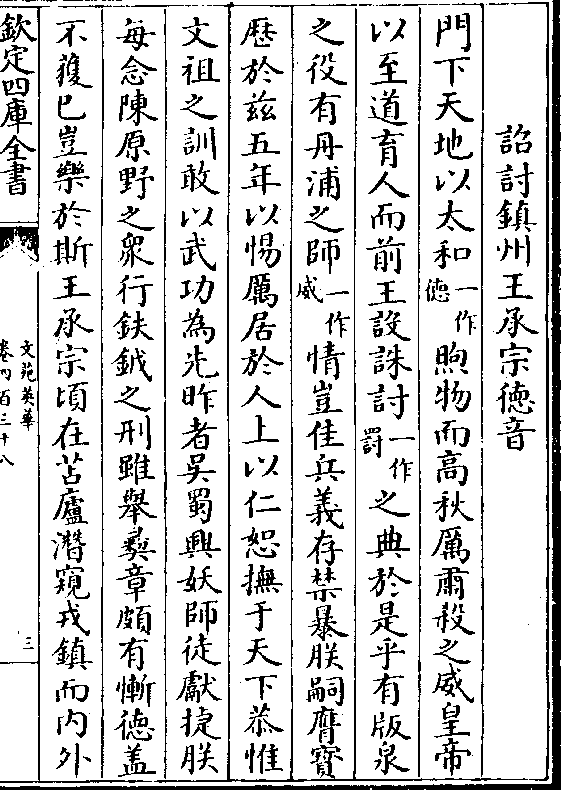 詔討鎮州王承宗徳音
門下天地以太和一作徳煦物而高秋厲肅殺之威皇帝
以至道育人而前王設誅討一作罰之典於是乎有版泉
之役有丹浦之師一作威情豈佳兵義存禁暴朕嗣膺寳
歴於兹五年以惕厲居於人上以仁恕撫于天下恭惟
文祖之訓敢以武功為先昨者吳蜀興妖師徒獻捷朕
每念陳原野之衆行鈇鉞之刑雖舉彛章頗有慚徳盖
不獲已豈樂於斯王承宗頃在苫廬潛窺戎鎮而内外
欽定四庫全書
文苑英華
卷四百三十八
三